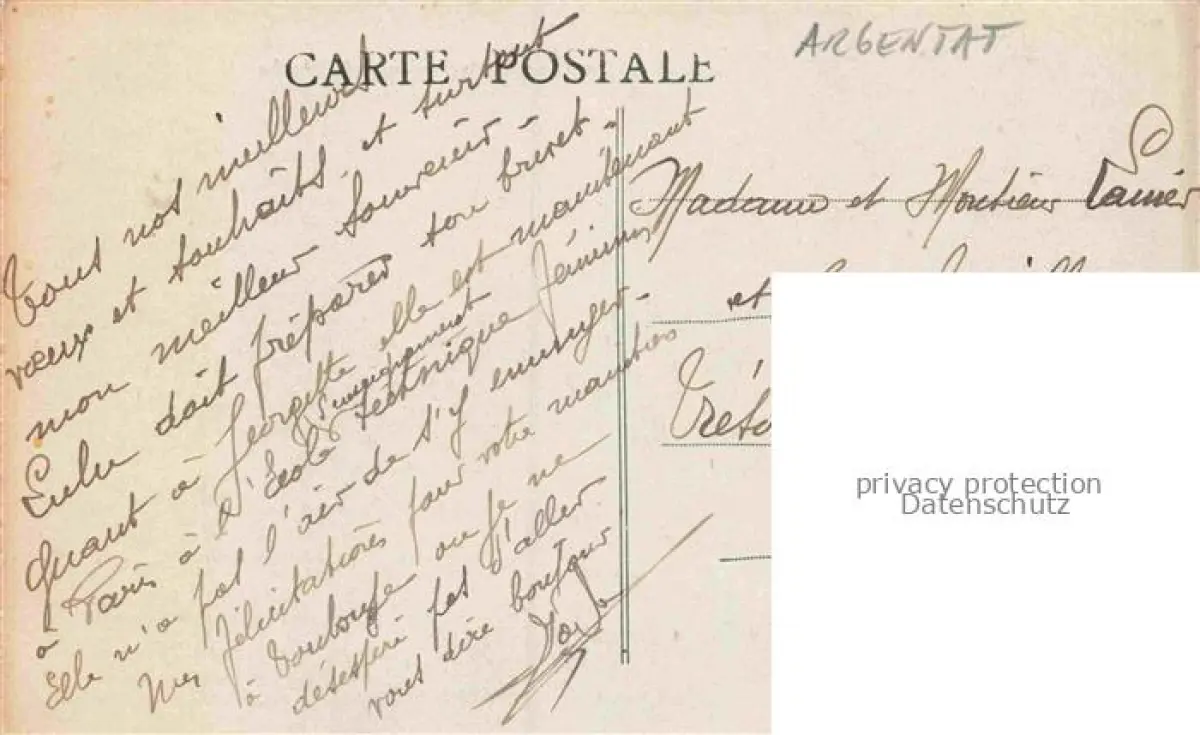 ARGENTAT
CARTE POSTALE
Tous nos meilleurs
vœux et souhaits. et surtout
mon meilleur souvenir -
Lulu doit préparer son brevet -
quant à Georgette elle est maintenant
à Paris à l'Ecole d'enseignement technique féminin
Elle n'a pas l'air de s'y ennuyer -
Mes félicitations pour votre
à Toulouse ou je ne
désespère pas d'aller
vous dire bonjour
Madame et Monsieur
et
privacy protection
Datenschutz